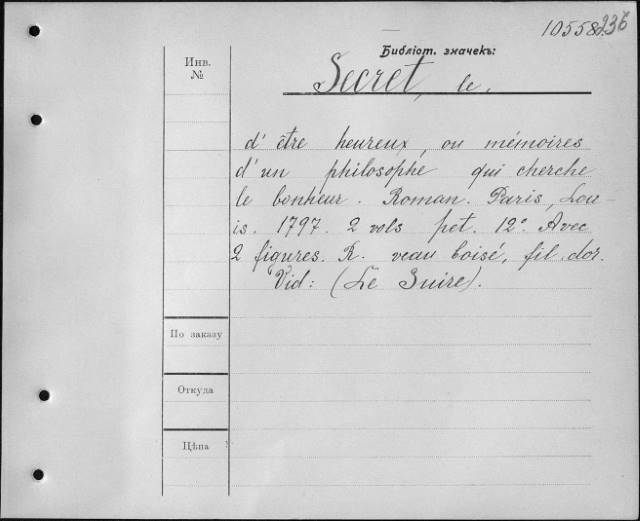 10558236
Библіот. значекъ:
Инв.
№
Secret, le,
d'être heureux, ou mémoires
d'un philosophe qui cherche
le bonheur. Roman. Paris, Lou-
is. 1797. 2 vols pet. 12° Avec
2 figures. R. veau boisé, fil. d'or.
Vid: (Le Suire).
По заказу
Откуда
Цѣна